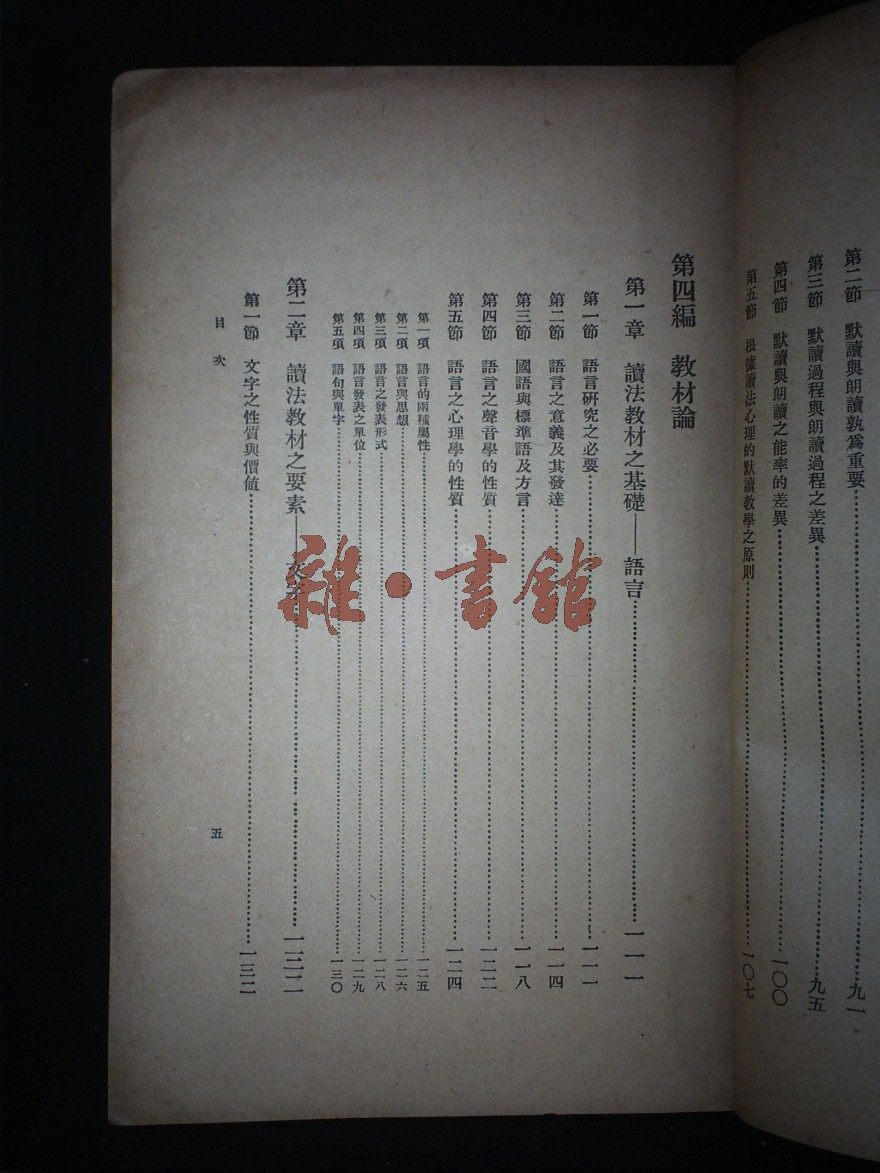 第二節 默讀與朗讀孰爲重要……九一
第三節 默讀過程與朗讀過程之差異……九五
第四節 默讀與朗讀之能率的差異……一〇〇
第五節 根據讀法心理的默讀教學之原則……一〇七
第四編 教材論
第一章 讀法教材之基礎——語言……一一一
第一節 語言研究之必要……一一一
第二節 語言之意義及其發達……一一四
第三節 國語與標準語及方言……一一八
第四節 語言之聲音學的性質……一二二
第五節 語言之心理學的性質……一二四
第一項 語言的兩種屬性……一二五
第二項 語言與思想……一二六
第三項 語言之發表形式……一二八
第四項 語言發表之單位……一二九
第五項 語句與單字……一三〇
第二章 讀法教材之要素——文字……一三二
第一節 文字之性質與價值……一三二
目次
五
雜·書館